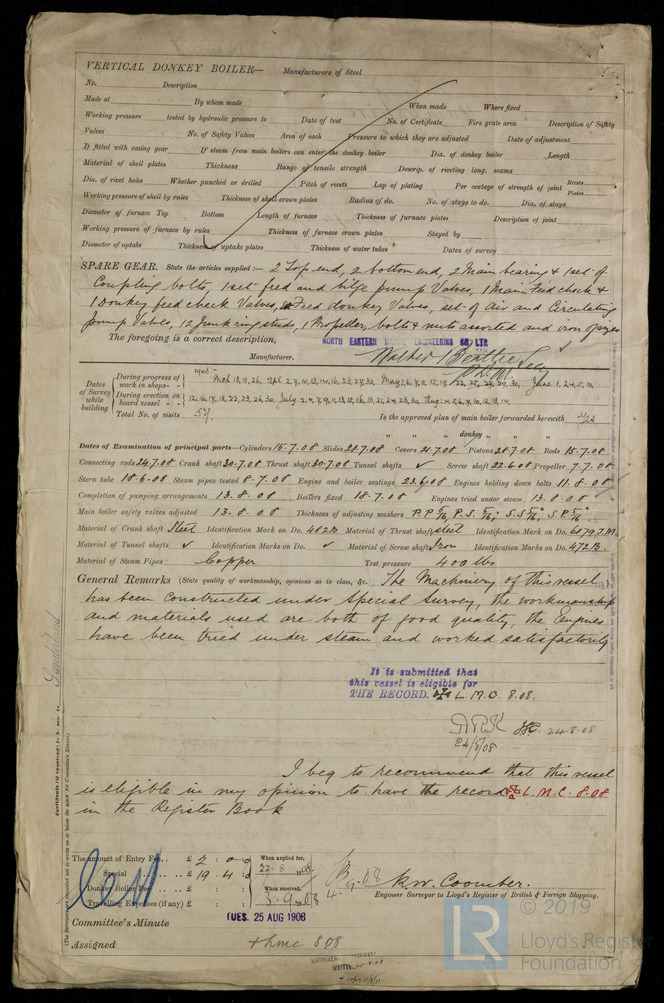 VERTICAL DONKEY BOILER— Manufacturers of Steel
No. Description
Made at By whom made When made Where fixed
Working pressure tested by hydraulic pressure to Date of test No. of Certificate Fire grate area Description of Safety
Valves No. of Safety Valves Area of each Pressure to which they are adjusted Date of adjustment
If fitted with easing gear If steam from main boilers can enter the donkey boiler Dia. of donkey boiler Length
Material of shell plates Thickness Range of tensile strength Descrip. of riveting long. seams
Dia. of rivet holes Whether punched or drilled Pitch of rivets Lap of plating Per centage of strength of joint Rivets Plates
Working pressure of shell by rules Thickness of shell crown plates Radius of do. No. of stays to do. Dia. of stays
Diameter of furnace Top Bottom Length of furnace Thickness of furnace plates Description of joint
Working pressure of furnace by rules Thickness of furnace crown plates Stayed by
Diameter of uptake Thickness of uptake plates Thickness of water tubes Dates of survey
SPARE GEAR. State the articles supplied:— 2 Top end, 2 bottom end, 2 Main bearing & 1 set of
Coupling bolts, 1 set feed and bilge pump Valves, 1 Main Feed check &
1 Donkey feed check Valves, Feed donkey Valves, set of Air and Circulating
pump Valves, 12 Junk ring studs, 1 Propeller, bolts & nuts assorted and iron of sizes
The foregoing is a correct description,
NORTH EASTERN MARINE ENGINEERING CO LTD
Manufacturer.
Dates of Survey while building
During progress of work in shops-- 1908 Mch 13, 26, Apl 2, 7, 10, 13, 14, 16, 22, 27, 30,
During erection on board vessel -- July
Total No. of visits 57
Is the approved plan of main boiler forwarded herewith Yes
" " " donkey " " "
Dates of Examination of principal parts—Cylinders 15-7.08 Slides 21.7.08 Covers 21.7.08 Pistons 21.7.08 Rods 15.7.08
Connecting rods 24.7.08 Crank shaft 20.7.08 Thrust shaft 20.7.08 Tunnel shafts ✓ Screw shaft 22.6.08 Propeller 7.7.08
Stern tube 18-6-08 Steam pipes tested 8.7.08 Engine and boiler seatings 23.6.08 Engines holding down bolts 11.8.08
Completion of pumping arrangements 13.8.08 Boilers fixed 18.7.08 Engines tried under steam 13.8.08
Main boiler safety valves adjusted 13.8.08 Thickness of adjusting washers
Material of Crank shaft Steel Identification Mark on Do. 482B Material of Thrust shaft steel Identification Mark on Do. 6079 J.M.
Material of Tunnel shafts ✓ Identification Marks on Do. ✓ Material of Screw shafts Iron Identification Marks on Do. 472B
Material of Steam Pipes Copper Test pressure 400 lbs
General Remarks (State quality of workmanship, opinions as to class, &c. The Machinery of this vessel
has been constructed under Special Survey, the workmanship
and materials used are both of good quality, the Engines
have been tried under steam and worked satisfactorily
It is submitted that
this vessel is eligible for
THE RECORD. ✠ L.M.C. 8.08.
24-8-08
24/8/08
I beg to recommend that this vessel
is eligible in my opinion to have the record ✠ L.M.C. 8.08
in the Register Book
The amount of Entry Fee .. £ 2 : 0 : 0
Special .. £ 19 : 4 : 0
Donkey Boiler Fee .. £ : :
Travelling Expenses (if any) £ : :
When applied for, 22-8-1908
When received, 3.9.08
R.W. Coomber.
Engineer Surveyor to Lloyd's Register of British & Foreign Shipping.
Committee's Minute TUES. 25 AUG 1908
Assigned + Lmc 8 08
WRITTEN
© 2019
LR
Lloyd's Register
Foundation